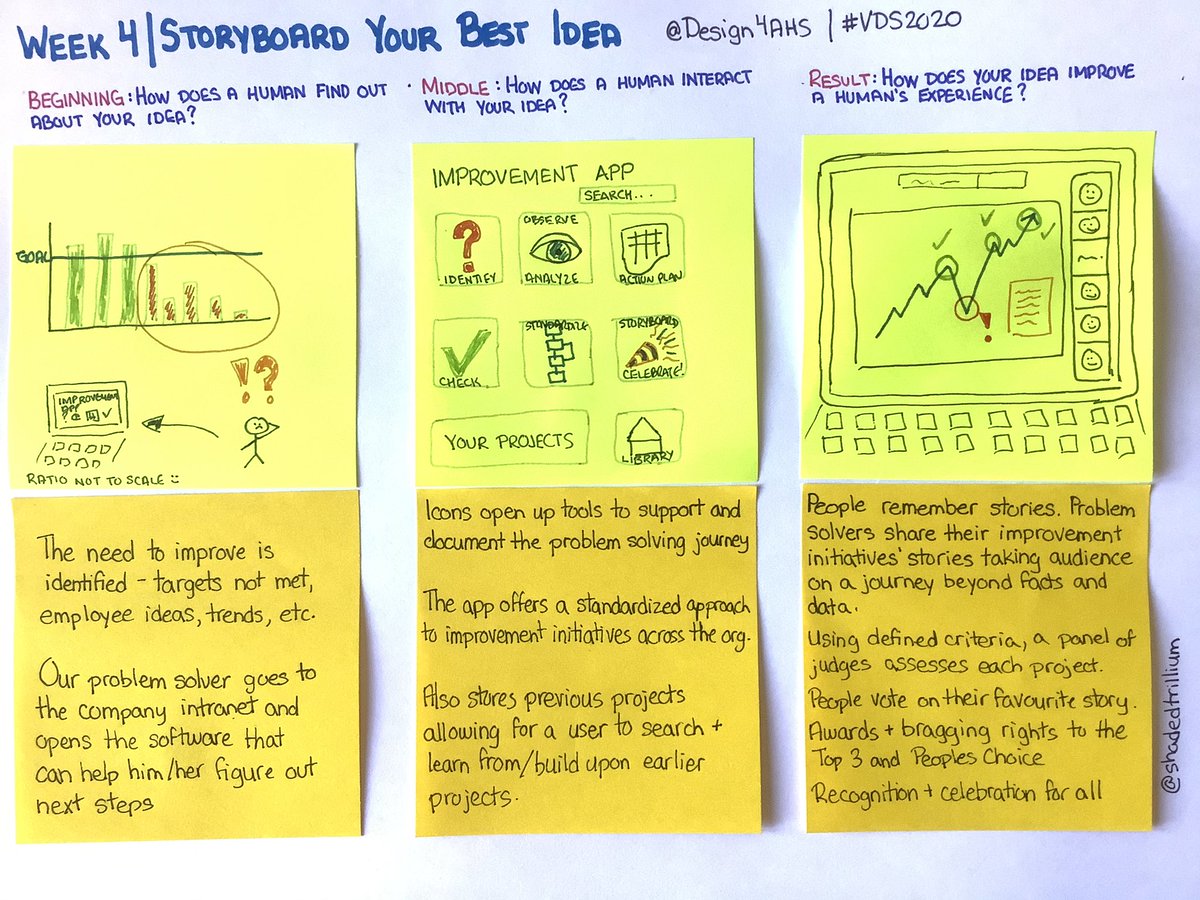 WEEK 4 | STORYBOARD YOUR BEST IDEA
@DESIGN4AHS | #VDS2020
BEGINNING: HOW DOES A HUMAN FIND OUT
ABOUT YOUR IDEA?
GOAL
!?
IMPROVEMENT
APP
RATIO NOT TO SCALE :
The need to improve is
identified - targets not met,
employee ideas, trends, etc.
Our problem solver goes to
the company intranet and
opens the software that
can help him/her figure out
next steps
MIDDLE: HOW DOES A HUMAN INTERACT
WITH YOUR IDEA?
IMPROVEMENT APP
SEARCH...
?
IDENTIFY
OBSERVE
ANALYZE
ACTION PLAN
CHECK
STORYBOARD
CELEBRATE!
YOUR PROJECTS
LIBRARY
Icons open up tools to support and
document the problem solving journey
The app offers a standardized approach
to improvement initiatives across the org.
Also stores previous projects
allowing for a user to search +
learn from/build upon earlier
projects.
RESULT: HOW DOES YOUR IDEA IMPROVE
A HUMAN'S EXPERIENCE?
!
People remember stories. Problem
solvers share their improvement
initiatives' stories taking audience
on a journey beyond facts and
data.
Using defined criteria, a panel of
judges assesses each project.
People vote on their favourite story.
Awards + bragging rights to the
Top 3 and Peoples Choice
Recognition + celebration for all
@shadedtrillium